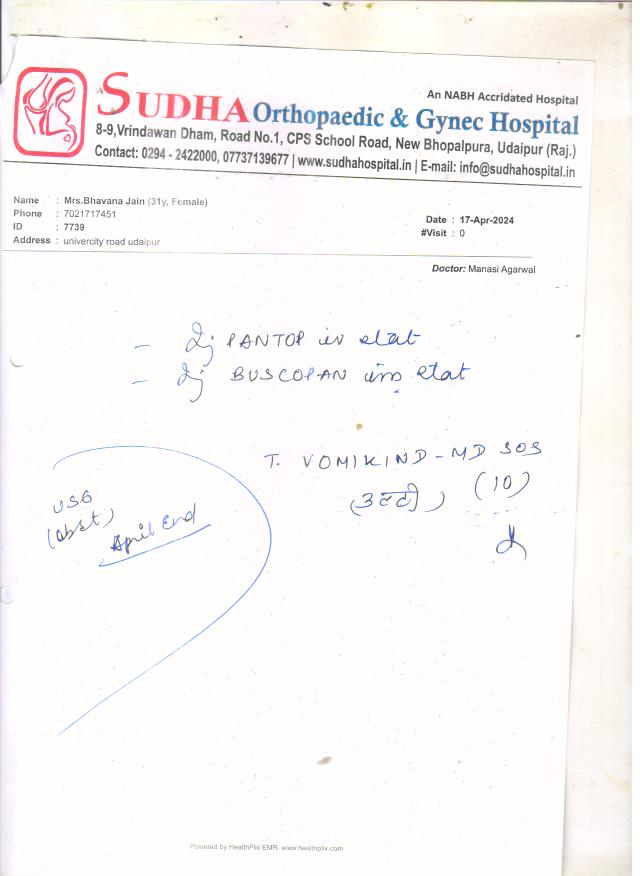 An NABH Accridated Hospital
SUDHA Orthopaedic & Gynec Hospital
8-9,Vrindawan Dham, Road No.1, CPS School Road, New Bhopalpura, Udaipur (Raj.)
Contact: 0294 - 2422000, 07737139677 | www.sudhahospital.in | E-mail: info@sudhahospital.in
Name : Mrs.Bhavana Jain (31y, Female)
Phone : 7021717451
ID : 7739
Address : univercity road udaipur
Date : 17-Apr-2024
#Visit : 0
Doctor: Manasi Agarwal
- Inj PANTOP iv stat
- Inj BUSCOPAN im stat
T. VOMIKIND-MD SOS
(उल्टी) (10)
USG
(obst)
April End
Powered by HealthPlix EMR. www.healthplix.com